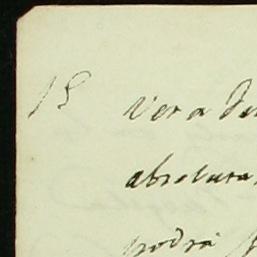 15
Vera de
absoluta
podrá